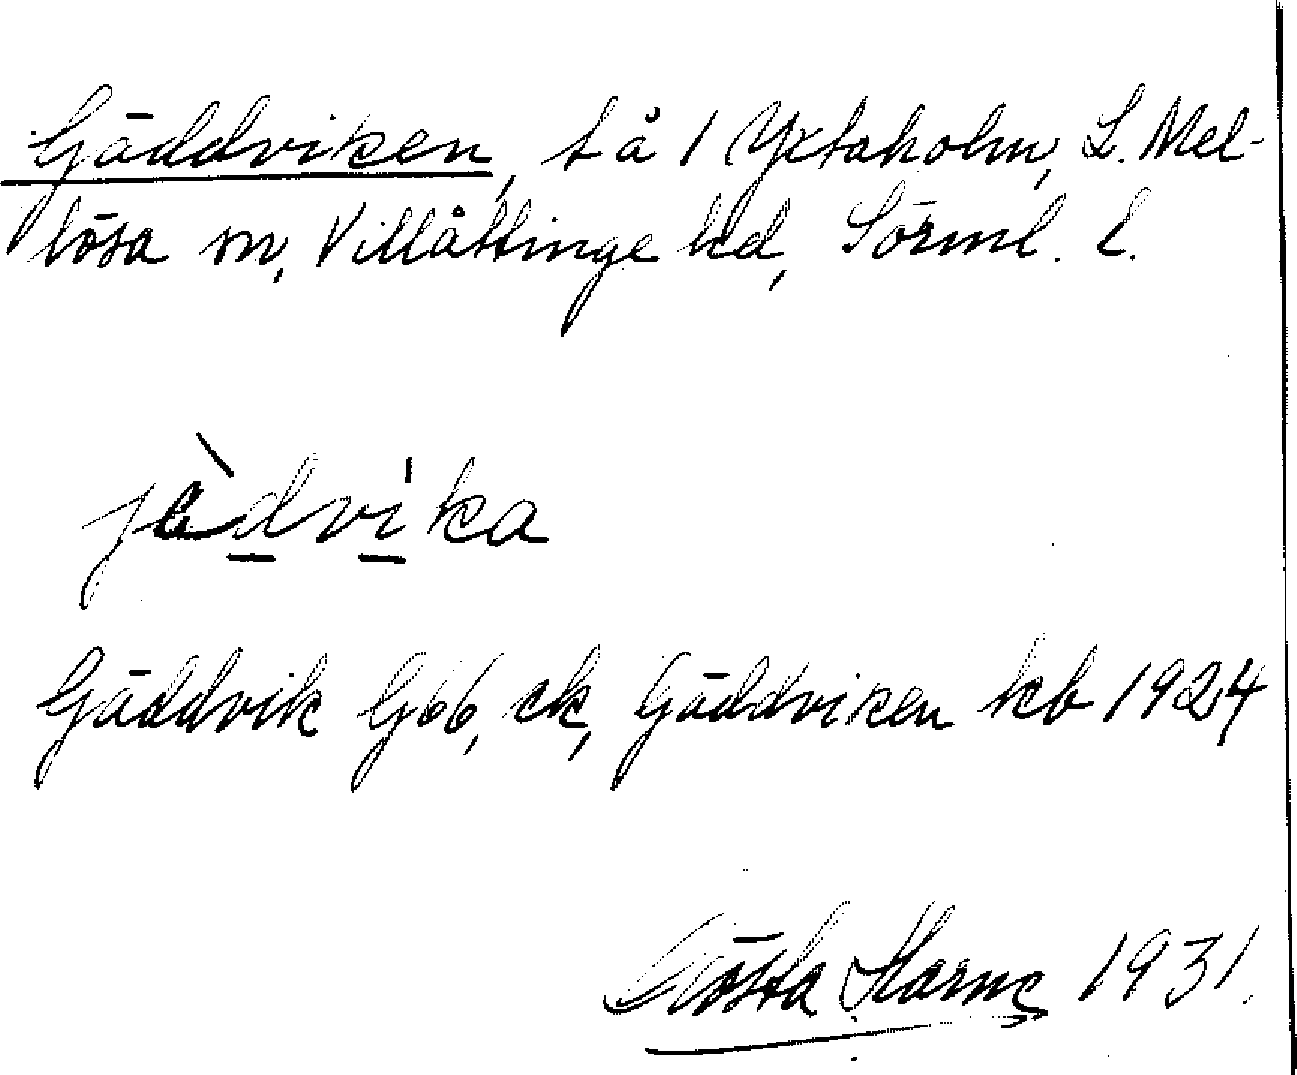 Gäddviken, t å / Yxtaholm, L. Mel-
lösa sn, Villåttinge hd, Sörml. l.
jèdvika
Gäddvik G66, ek, Gäddviken kb 1924
Gösta 1931.